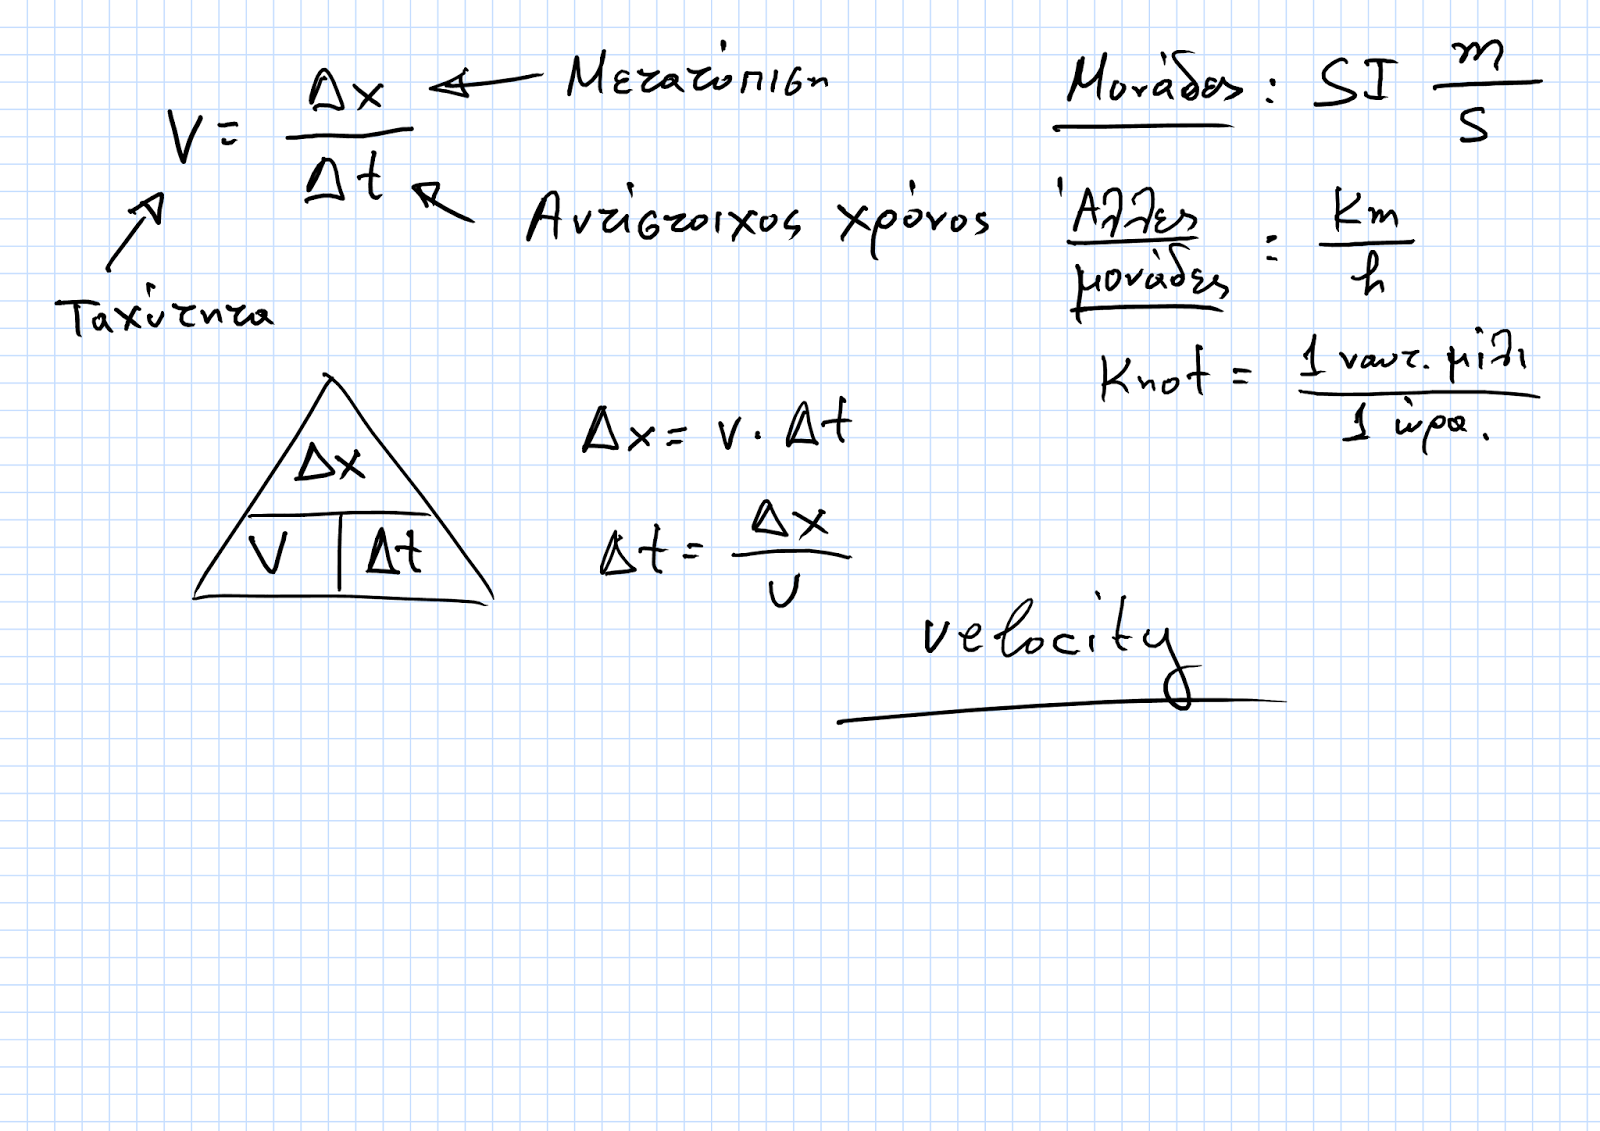 V = Δx / Δt
Μετατόπιση
Αντίστοιχος χρόνος
Ταχύτητα
Μονάδες : SI m / s
Άλλες μονάδες : Km / h
Knot = 1 ναυτ. μίλι / 1 ώρα.
Δx
V Δt
Δx = v · Δt
Δt = Δx / υ
velocity